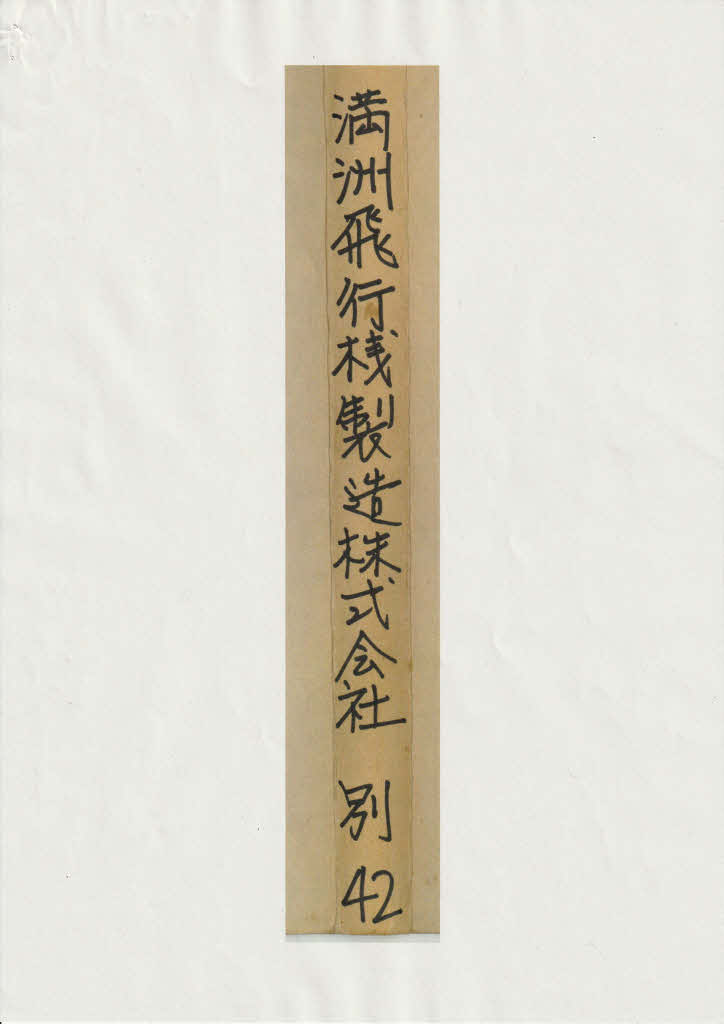 満洲飛行桟製造株式会社 別42